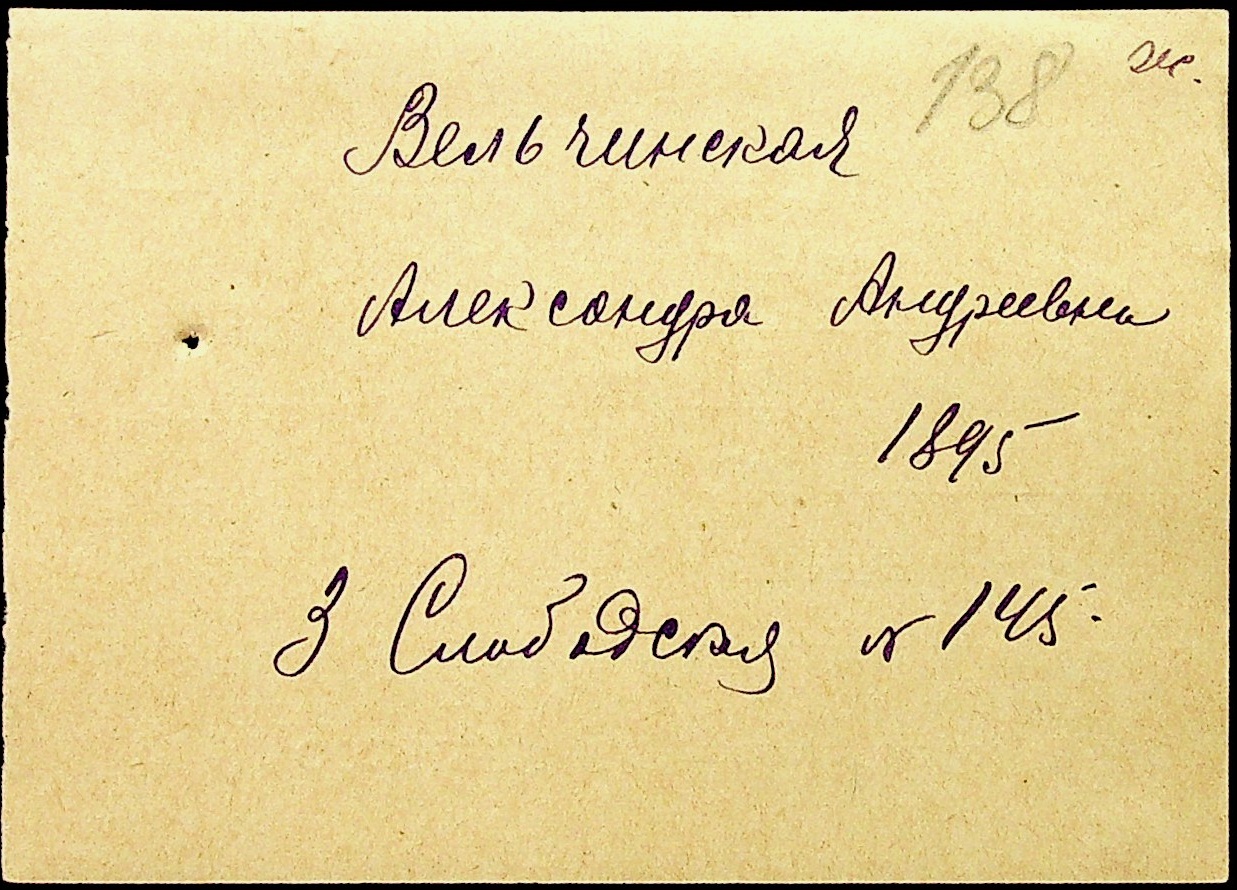 138 ж.
Вельчинская
Александра Андреевна
1895
3 Слободская № 145.